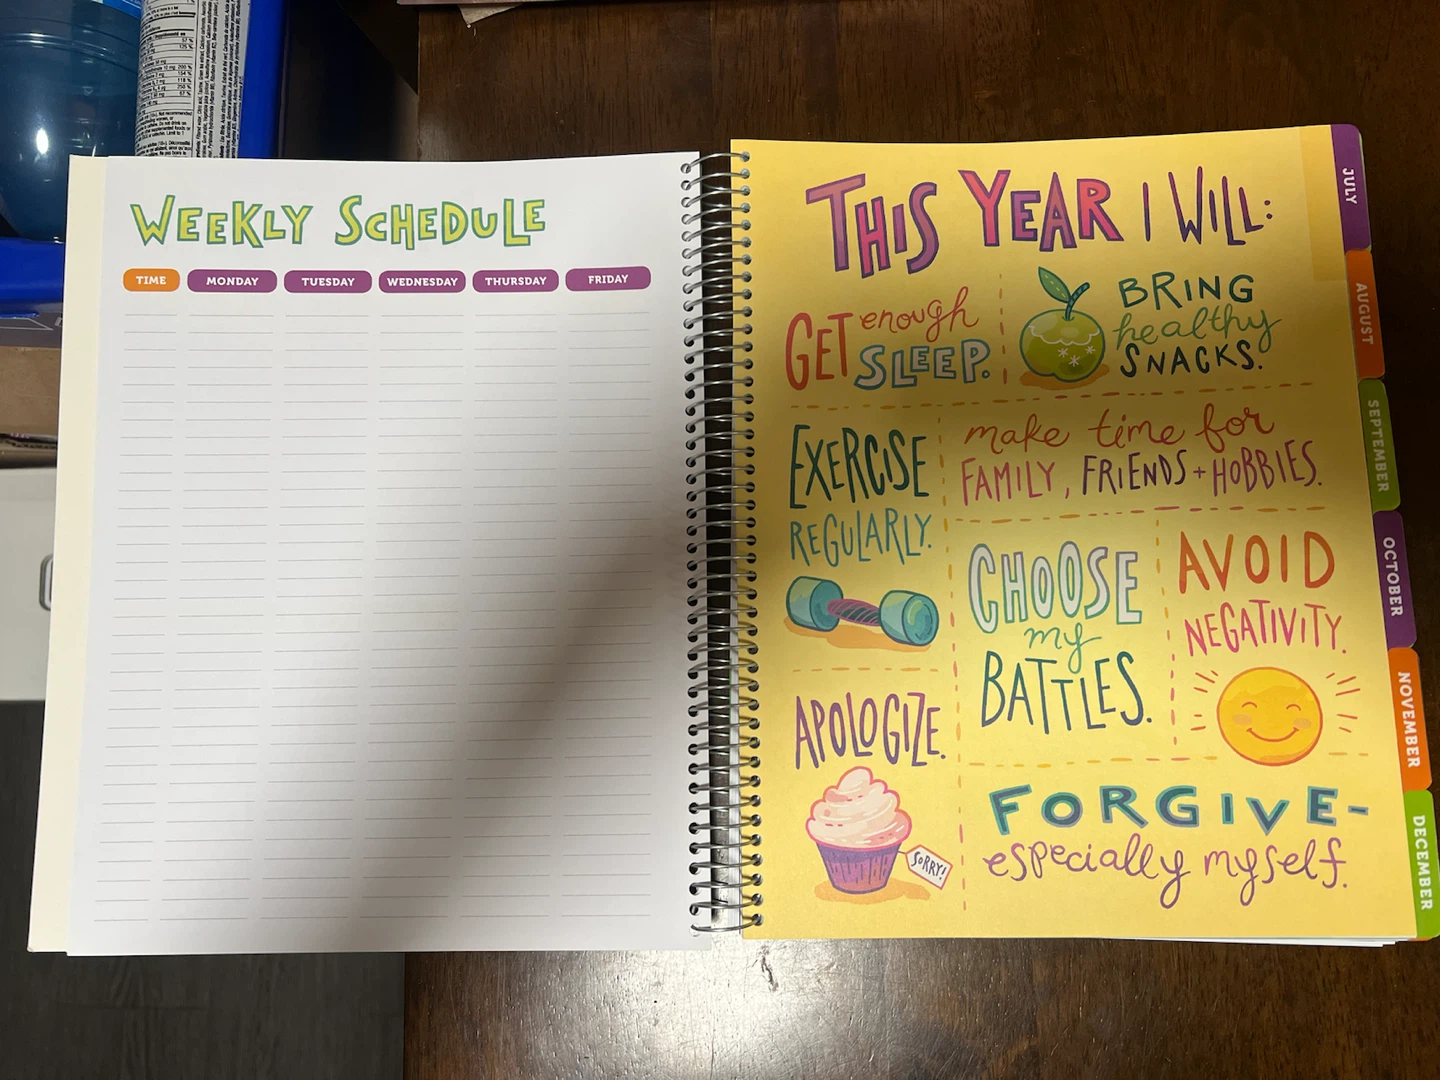 WEEKLY SCHEDULE
TIME MONDAY TUESDAY WEDNESDAY THURSDAY FRIDAY
THIS YEAR I WILL:
GET enough
SLEEP.
BRING
healthy
SNACKS.
EXERCISE
REGULARLY.
make time for
FAMILY, FRIENDS + HOBBIES.
CHOOSE
my
BATTLES.
AVOID
NEGATIVITY.
APOLOGIZE.
SORRY!
FORGIVE-
especially myself.
JULY
AUGUST
SEPTEMBER
OCTOBER
NOVEMBER
DECEMBER